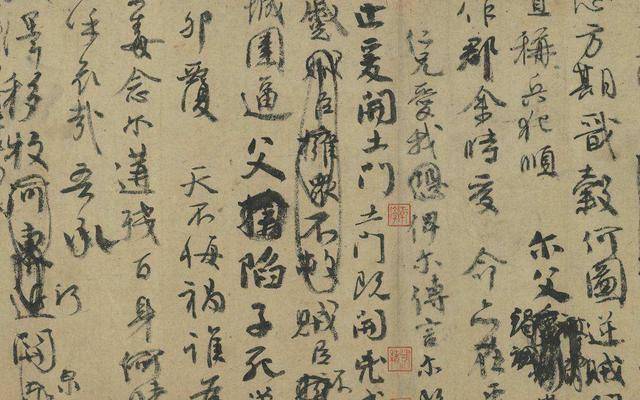 方期戩穀何圖逆賊
稱兵犯順
尔父
作郡余時受命亦在平
仁兄愛我恐俾尔傳言尔既
爰開土門土門既開兇威
蹙賊臣擁衆不救賊臣不
城圍逼父陷子死巢
卵覆天不悔禍誰為
毒念尔遘殘百身何贖
哀哉吾承
澤移牧河東近